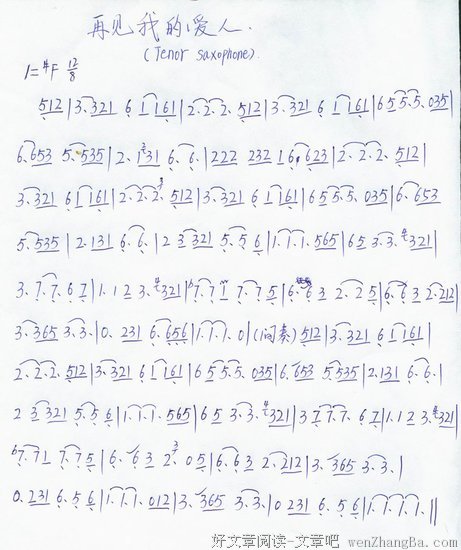 再见我的爱人.
(Tenor saxophone).
1=#F 12/8
512|3·321 6 1 161|2·2·2·512|3·321 6 1 161|6 5 5·5·035|
6·653 5·535|2·131 6·6·|222 232 1 6·623|2·2·2·512|
3·321 6 1 161|2·2·2·512|3·321 6 1 161|6 5 5·5·035|6·653
5·535|2·131 6·6·|2 3 321 5·5 6|1·1·1·565|6 5 3·3·#321|
3·7·7·6 7|1·1 2 3·#321|b7·7 1 7·7 5|6·6 3 2·2 5|6·6 3 2·212|
3·365 3·3·|0·231 6·656|1·1·1·0|(间奏) 512|3·321 6 1 161|
2·2·2·512|3·321 6 1 161|6 5 5·5·035|6·653 5·535|2·131 6·6·|
2 3 321 5·5 6|1·1·1·565|6 5 3·3·#321|3 7·7·7·6 7|1·1 2 3·#321|
b7·71 7·75|6·63 2·05|6·63 2·212|3·365 3·3·|
0·231 6·56|1·1·1·012|3·365 3·3·|0 231 6·56|1·1·1·1·||
好文章阅读-文章吧 wenZhangBa.com